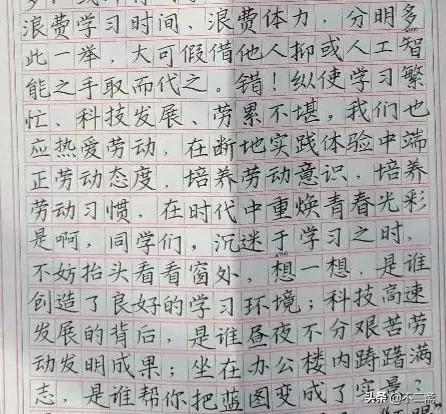 浪费学习时间、浪费体力，分明多
此一举，大可假借他人抑或人工智
能之手取而代之。错！纵使学习繁
忙、科技发展、劳累不堪，我们也
应热爱劳动，在断地实践体验中端
正劳动态度，培养劳动意识，培养
劳动习惯，在时代中重焕青春光彩
是啊，同学们，沉迷于学习之时，
不妨抬头看看窗外，想一想，是谁
创造了良好的学习环境；科技高速
发展的背后，是谁昼夜不分艰苦劳
动发明成果；坐在办公楼内踌躇满
志，是谁帮你把蓝图变成了实景？
头条 @不二斋